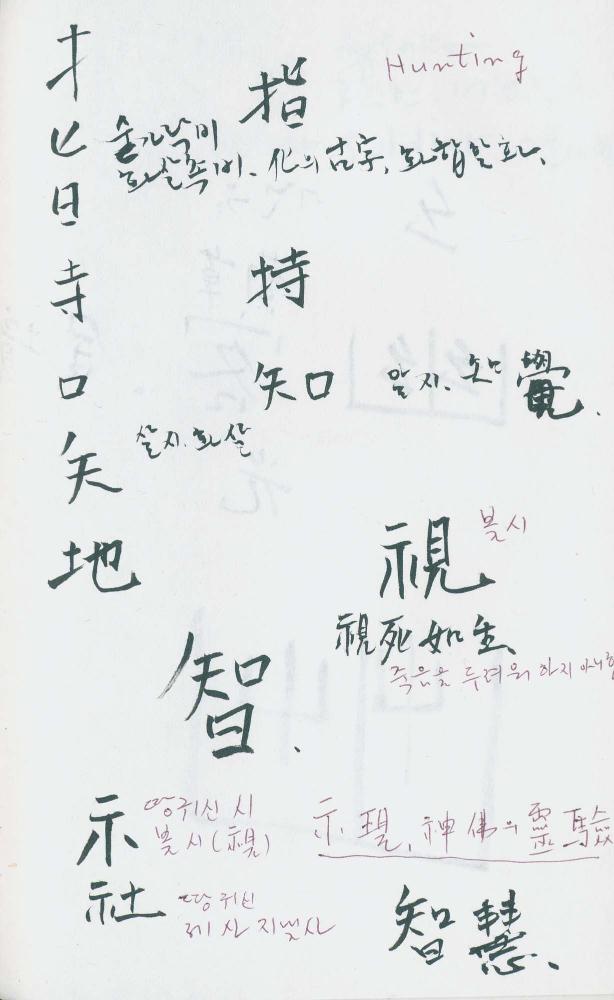 扌
Hunting
指
匕 숟가락비
화살촉비. 化의 古字, 화할 화.
日
寺 持
口 知 알지. 知覺.
矢 살시. 화살
地
視 볼시
視死如生
죽음을 두려워 하지 아니함
智.
示 땅귀신 시
볼시(視)
示現, 神佛의 靈驗
社 땅귀신
제사 지낼사
智慧.